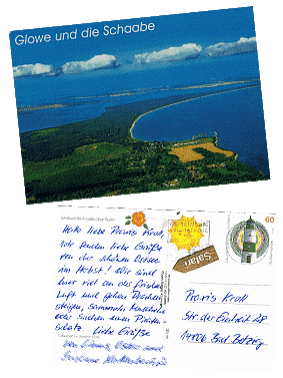 Glowe und die Schaabe
Hallo liebe Praxis Kroll,
wir senden liebe Grüße
von der schönen Ostsee
im Herbst! Wir sind
hier viel an der frischen
Luft und gehen Drachen
steigen, sammeln Muscheln
oder suchen einen Piraten-
schatz. Liebe Grüße
von
60
Safari
Praxis Kroll
Str. der Einheit
14806 Bad Belzig